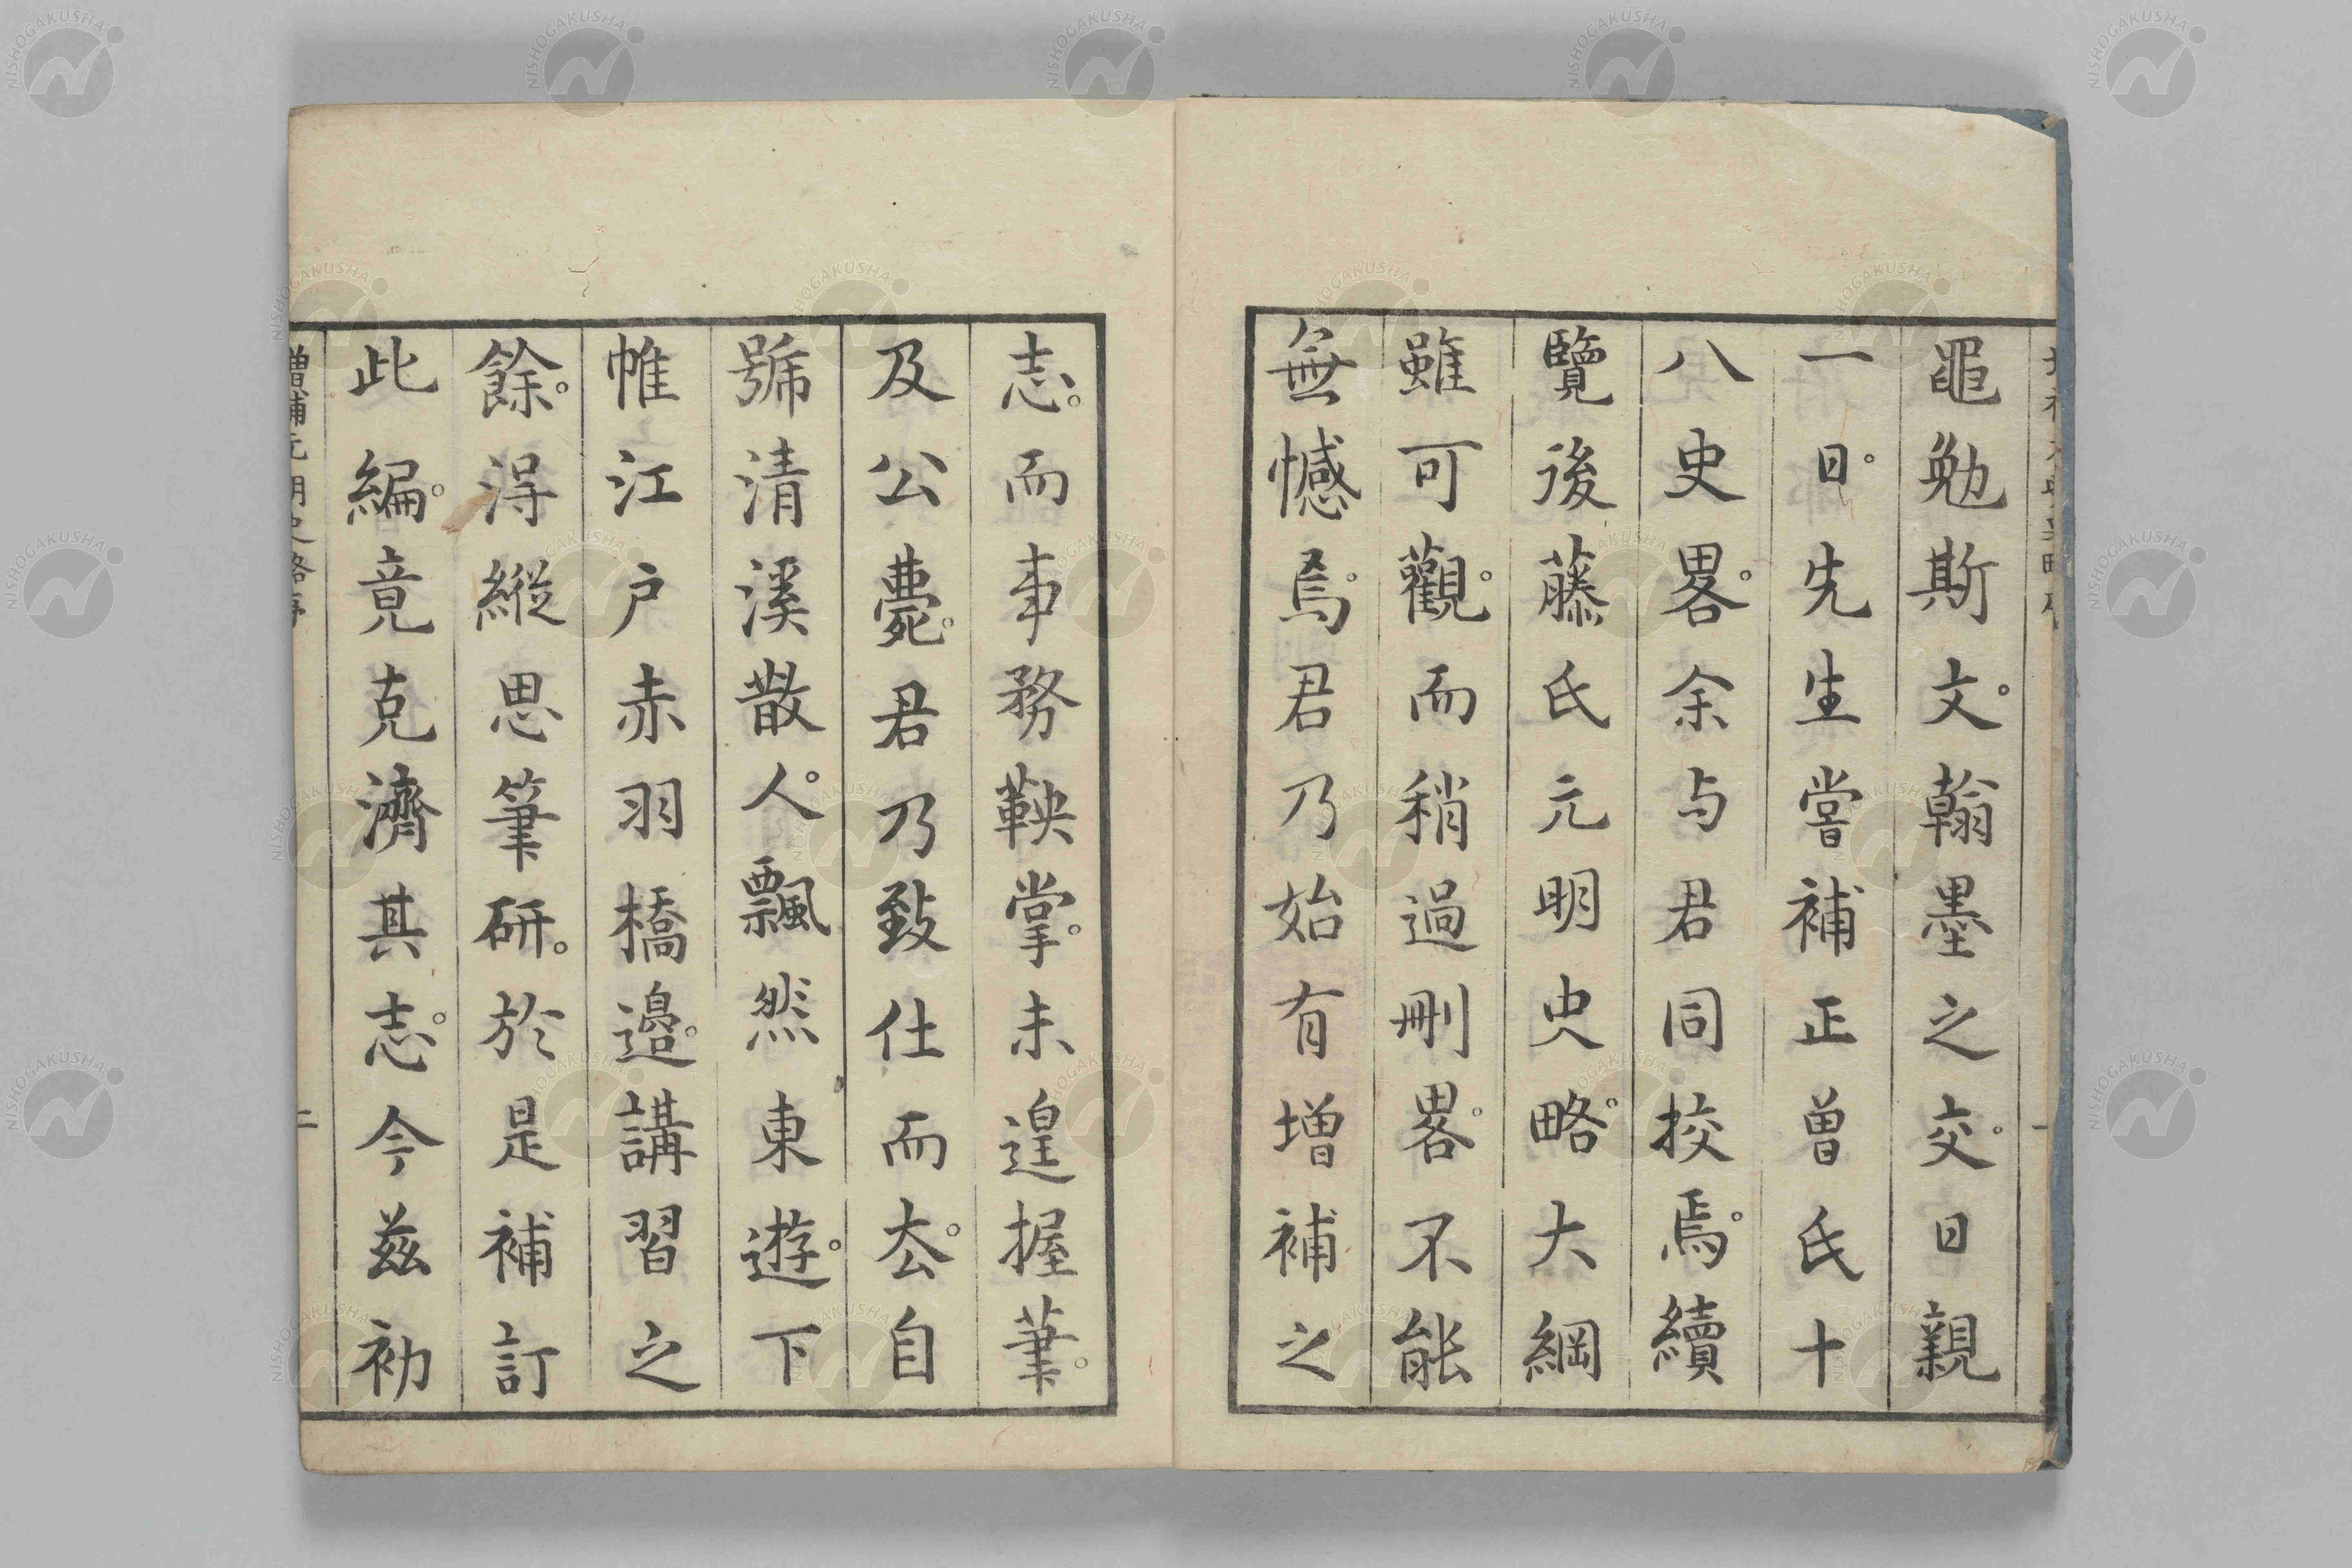 黽勉斯文。翰墨之交。日親
一日。先生嘗補正曽氏十
八史畧。余与君同挍焉。續
覽後藤氏元明史略。大綱
雖可觀。而稍過刪畧。不能
無憾焉。君乃始有増補之
志。而事務鞅掌。未遑握筆。
及公薨。君乃致仕而厺。自
號清溪散人。飄然東遊。下
帷江戸赤羽橋邉。講習之
餘。淂縱思筆研。於是補訂
此編。竟克濟其志。今兹初
増補元明史略序
二
一
NISHOGAKUSHA